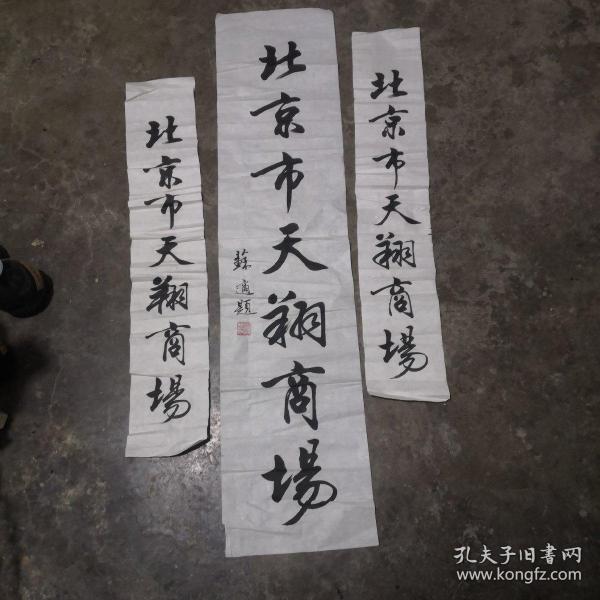 北京市天翔商場
北京市天翔商場
蘇適題
北京市天翔商場
孔夫子旧書网
www.kongfz.com